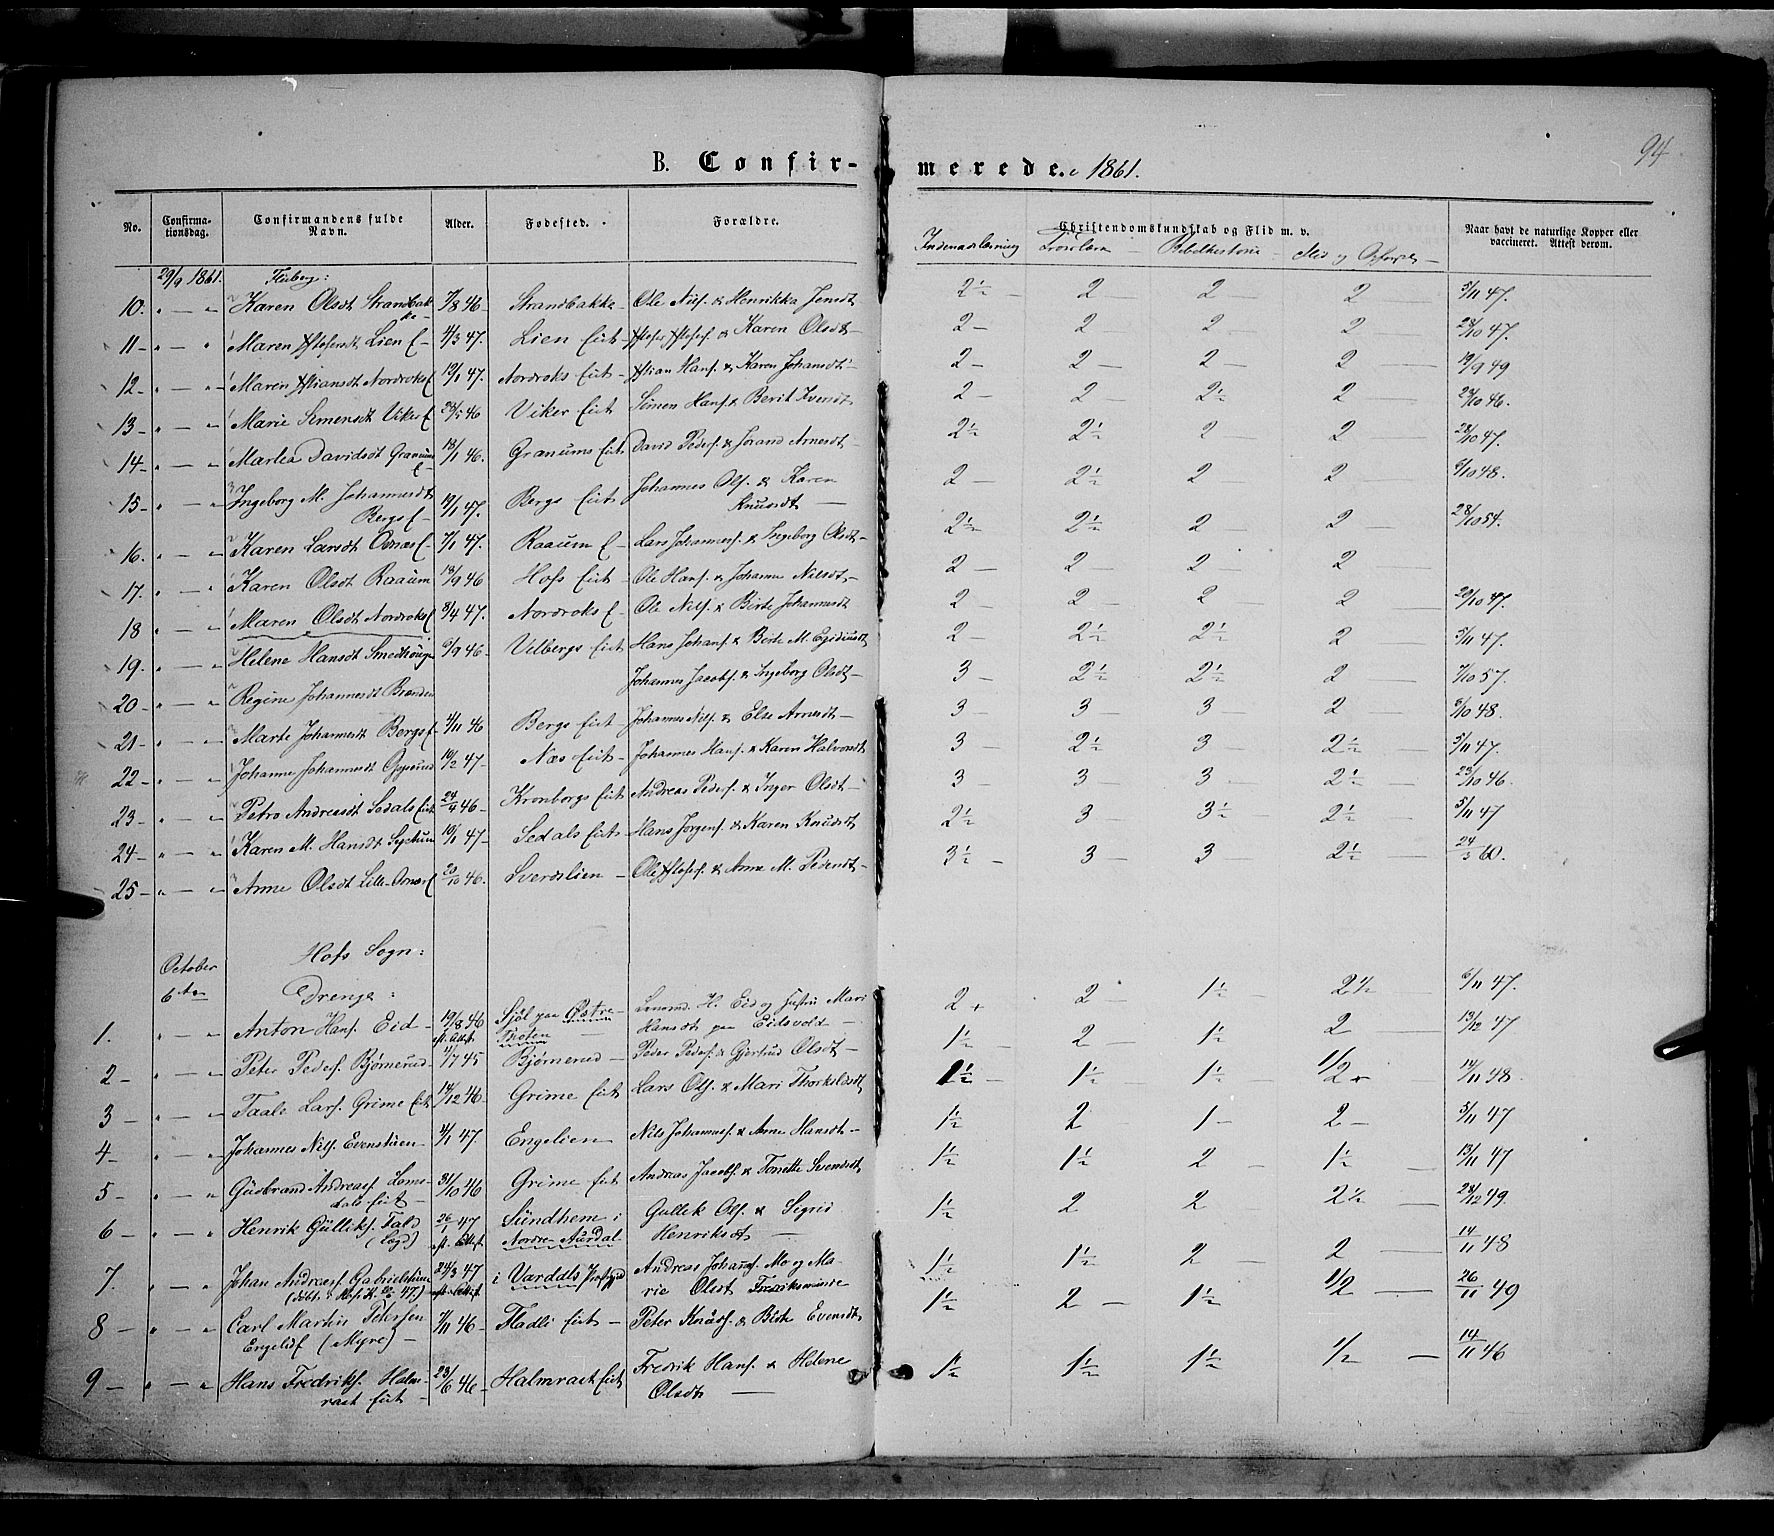 94
B. Confir-merede. 1861.
No. Confirma-tionsdag. Confirmandens fulde Navn. Alder. Fødested. Forældre. Christendomskundskab og Flid m. v. Naar havt de naturlige Kopper eller vaccineret. Attest derom.
Indenadslæsning Troeslære Bibelhistorie Flid og
29/9 1861. Fluberg:
10. " — " Karen Olsdt Strandbakke 7/8 46 Strandbakke Ole Nilss. & Henrikka Jensdt 2½ — 2 2 — 2 5/11 47.
11 — " — " Maren Lien 4/3 47. Lien Eiet & Karen Olsdt — 2 — 2 2 — 2 28/10 47.
12 — " — " Maren Nordroks 19/1 47. Nordroks Eiet Hans. & Karen Johansdt 2 — 2 — 2 — 2 — 19/9 49
13 — " — " Marie Simensdt Viker 23/5 46 Viker Eiet Simen Hans. & Berit Evensdt 2 — 2 — 2½ 2 — 23/10 46.
14 — " — " Marlea Davidsdt Granums 18/1 46. Granums Eiet David Peders. & Jorand Arnesdt — 2½ 2½ 2 2 — 28/10 47.
15 — " — " Ingeborg M. Johannesdt Bergs 19/1 47. Bergs Eiet Johannes Ols. & Karen Knudsdt — 2 — 2½ 2 2 — 6/10 48.
16. " — " Karen Larsdt Odnæs 7/1 47. Raaum Lars Johanness. & Ingeborg Olsdt — 2½ 2½ 2 — 2 — 28/10 54.
17. " — " Karen Olsdt Raaum 18/9 46 Hofs Eiet Ole Hans. & Johanne Nilsdt — 2 — 2 — 2 — 2
18 " — " Maren Olsdt Nordroks 8/4 47. Nordroks Ole Nils. & Birte Johannesdt 2 — 2 — 2 2 — 20/10 47.
19. " — " Helene Hansdt Smedhaugen 6/9 46 — Velbergs Eiet Hans Johans. & Berte M. Egidiusdt 2 — 2½ 2½ 2 — 5/11 47.
20 — " — " Regine Johannesdt Brænden Johannes Jacobs. & Ingeborg Olsdt — 3 — 2½ 2½ 2 — 7/10 57.
21 — " — " Marte Johannesdt Bergs 4/11 46 Bergs Eiet Johannes Nils. & Else Arnesdt — 3 — 3 3 — 2 — 6/10 48.
22 — " — " Johanne Johannesdt 19/2 47 — Næs Eiet — Johannes Hans. & Karen Halvorsdt 3 — 2½ 3 2½ — 5/11 47.
23 — " — " Petro Andreasdt Sedals Eiet 24/4 46 — Kronborgs Eiet Andreas Peders. & Inger Olsdt — 3 — 3 3 — 2½ — 23/10 46.
24 — " — " Karen M. Hansdt 19/1 47 — Sedals Eiet Hans Jørgens. & Karen Knudsdt 2½ 3 — 3½ 2½ — 5/11 47
25 — " — " Anne Olsdt Lille-Odnæs 20/10 46. Sverdslien — Ole & Anne M. Pedersdt — 3½ — 3 — 3 2½ — 24/3 60.
Hofs Sogn:
October 6te Drenge:
1. " — " Anton Hans. Eid — 19/8 46 eft. Attest. Sjol paa Østre-Toten Lensmd. H. Eid og Hustru Mari Hansdt paa Eidsvold — 2 + 2 — 1½ — 2½ — 6/11 47.
2 — " — " Peter Peders. Bjørnerud 4/7 45 Bjørnerud — Peder Peders. & Gjertrud Olsdt — 1½ — 2 — 1½ 2 — 13/12 47
3 — " — " Taale Lars. Grime Eiet 14/12 46 — Grime Eiet Lars Ols. & Mari Thorkildsdt 1½ — 1½ 1½ — 1/2 + 14/11 48.
4 — " — " Johannes Nils. Evenstuen — 4/1 47 Engelien — Nils Johanness. & Anne Hansdt — 1½ 2 1 — 2 — 5/11 47
5 — " — " Gudbrand Andreass. Lomsdals Eiet — 31/10 46 Grime Eiet Andreas Jacobs. & Tonette Svendsdt 1½ 1½ 2 — 1½ — 13/11 47
6 — " — " Henrik Gulliks. Fald 26/1 47 eft. Attest. Sündhem i Nordre Aurdal Gullik Ols. & Sigrid Henriksdt — 1½ 2 2 2½ — 28/12 49.
7. " — " Johan Andreas. Gabrielstuen 24/3 47 eft. Attest i Vardals Præstegjd Andreas Johans. Mo og Marie Olsdt 1½ 1½ 2 — 2 — 14/11 48
8 — " — " Carl Martin Petersen Engelid (Myre) — 4/11 46 — Fladli Eiet — Peter Knuds. & Birte Evensdt 1½ 2 — 1½ 1/2 — 26/11 49
9 — " — " Hans Fredriks. Halmrast Eiet — 23/6 46 — Halmrast Eiet Fredrik Hans. & Helene Olsdt — 1½ 1½ 1½ 1/2 — 14/11 46